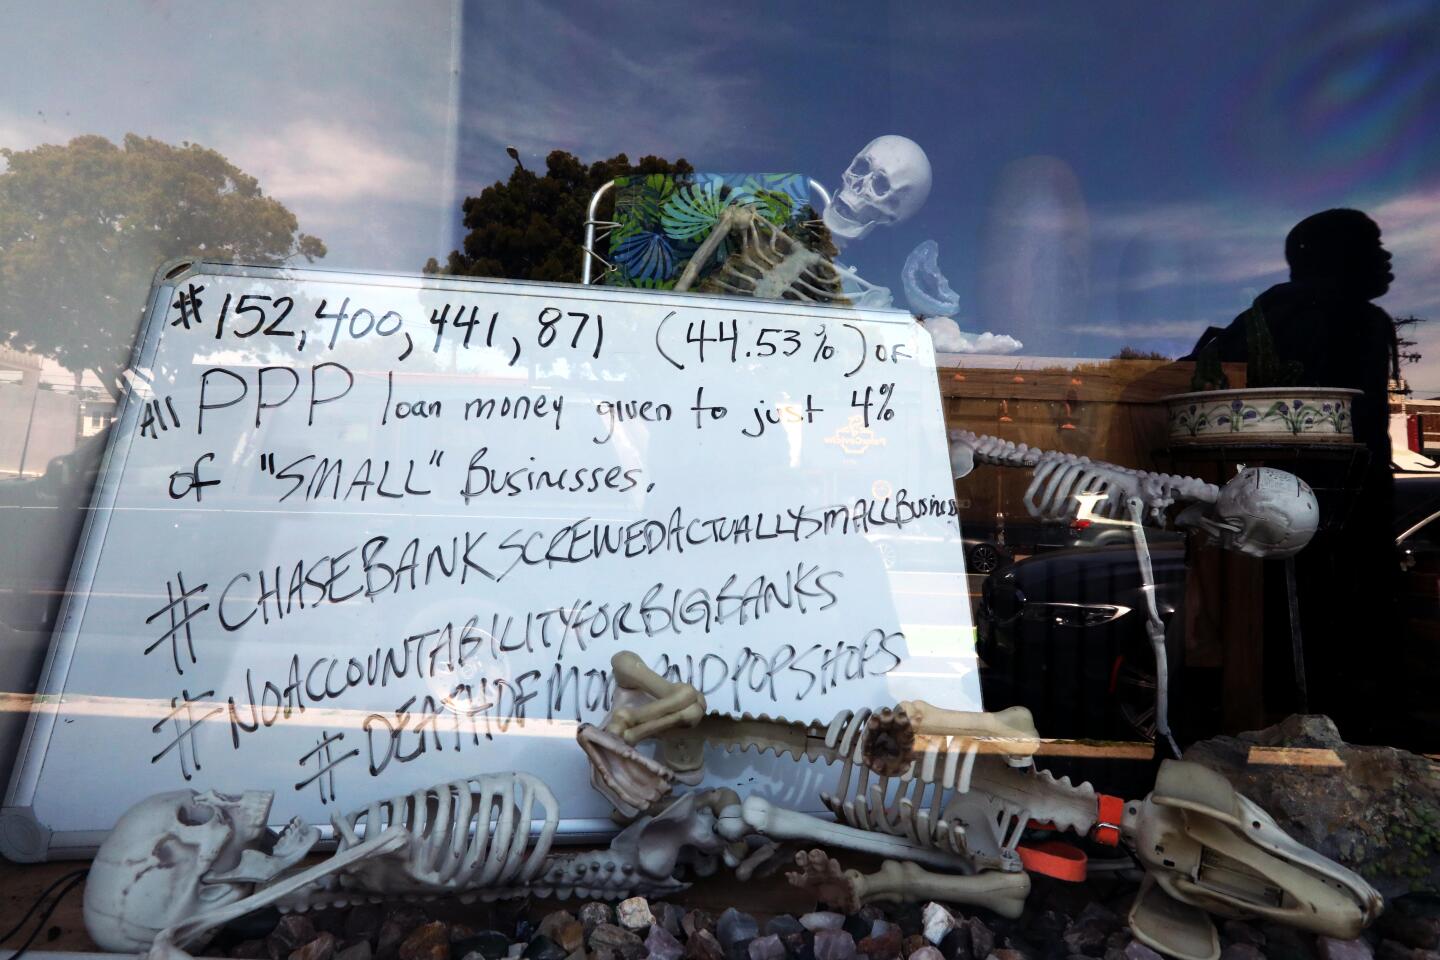 $152,400,441,871 (44.53%) OF
All PPP loan money given to just 4%
of "SMALL" Businesses.
#CHASEBANKSCREWEDACTUALLYSMALLBusiness
#NOACCOUNTABILITYFORBIGBANKS
#DEATHOFMOMANDPOPSHOPS